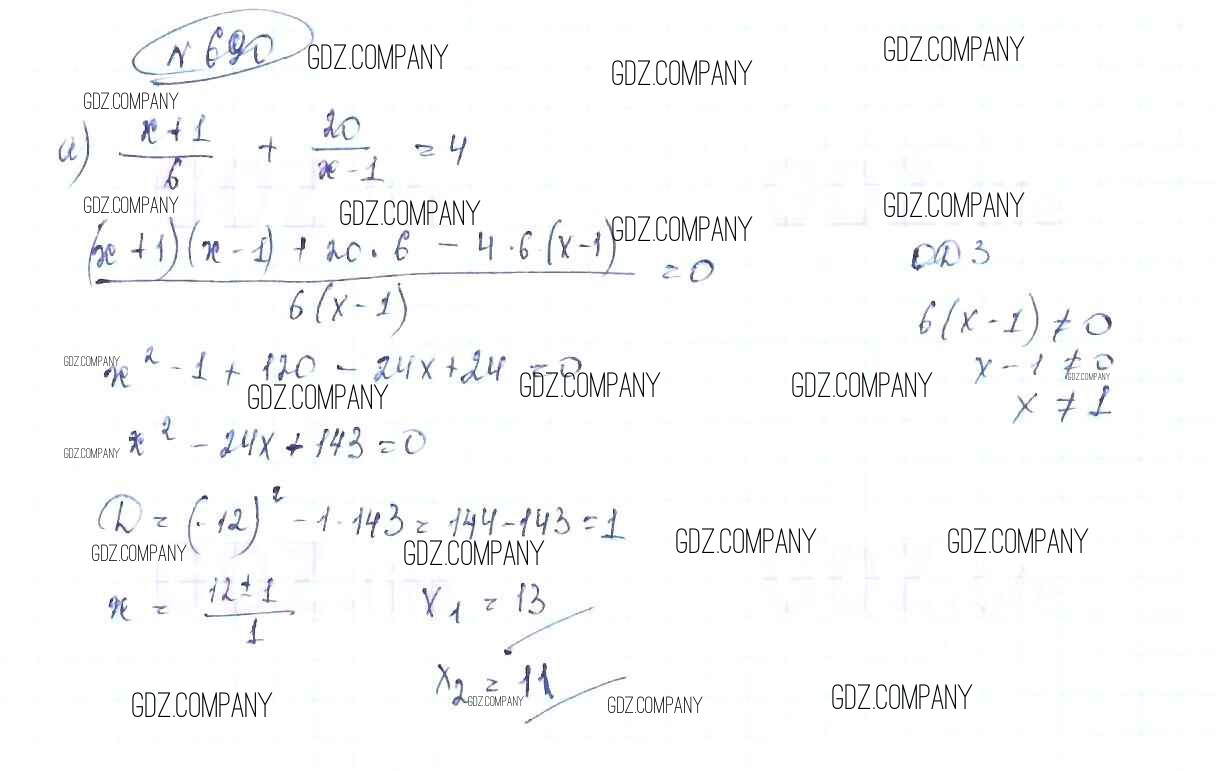 № 690
GDZ.COMPANY GDZ.COMPANY GDZ.COMPANY
GDZ.COMPANY
а) (x + 1)/6 + 20/(x - 1) = 4
GDZ.COMPANY GDZ.COMPANY GDZ.COMPANY GDZ.COMPANY
((x + 1)(x - 1) + 20 · 6 - 4 · 6 (x - 1))/(6(x - 1)) = 0
ОДЗ
6(x - 1) ≠ 0
x - 1 ≠ 0
x ≠ 1
GDZ.COMPANY
x² - 1 + 120 - 24x + 24 = 0
GDZ.COMPANY GDZ.COMPANY GDZ.COMPANY GDZ.COMPANY
GDZ.COMPANY
x² - 24x + 143 = 0
D = (-12)² - 1 · 143 = 144 - 143 = 1
GDZ.COMPANY GDZ.COMPANY GDZ.COMPANY GDZ.COMPANY
x = (12 ± 1)/1 x₁ = 13
x₂ = 11
GDZ.COMPANY GDZ.COMPANY GDZ.COMPANY GDZ.COMPANY